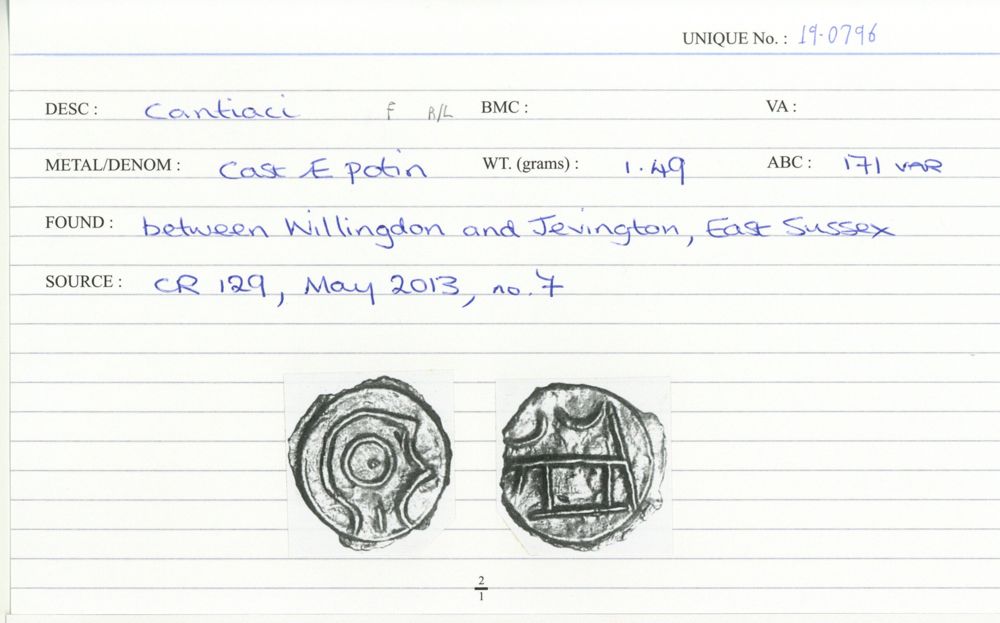 UNIQUE No. : 19-0796
DESC : Cantiaci F R/L BMC : VA :
METAL/DENOM : Cast Æ potin WT. (grams) : 1.49 ABC : 171 VAR
FOUND : between Willingdon and Jevington, East Sussex
SOURCE : CR 129, May 2013, no. 7
2
1